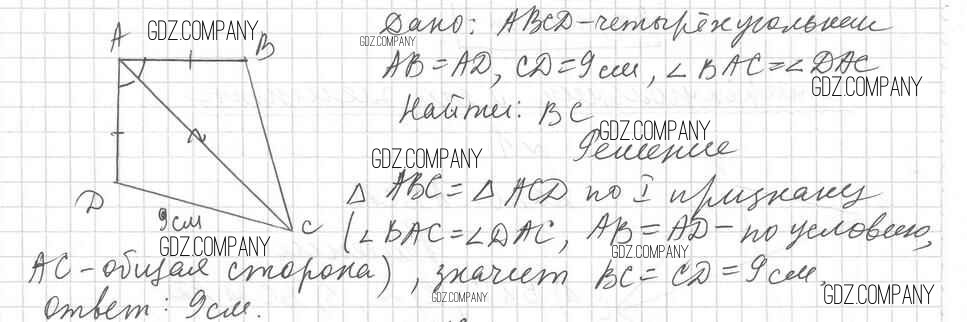 GDZ.COMPANY
A
B
D
C
9 см
GDZ.COMPANY
Дано: ABCD – четырёхугольник
GDZ.COMPANY
AB = AD, CD = 9 см, ∠ BAC = ∠ DAC
GDZ.COMPANY
Найти: BC
GDZ.COMPANY
GDZ.COMPANY
Решение
△ ABC = △ ACD по I признаку
(∠ BAC = ∠ DAC, AB = AD – по условию,
GDZ.COMPANY
AC – общая сторона), значит BC = CD = 9 см.
GDZ.COMPANY
GDZ.COMPANY
Ответ: 9 см.